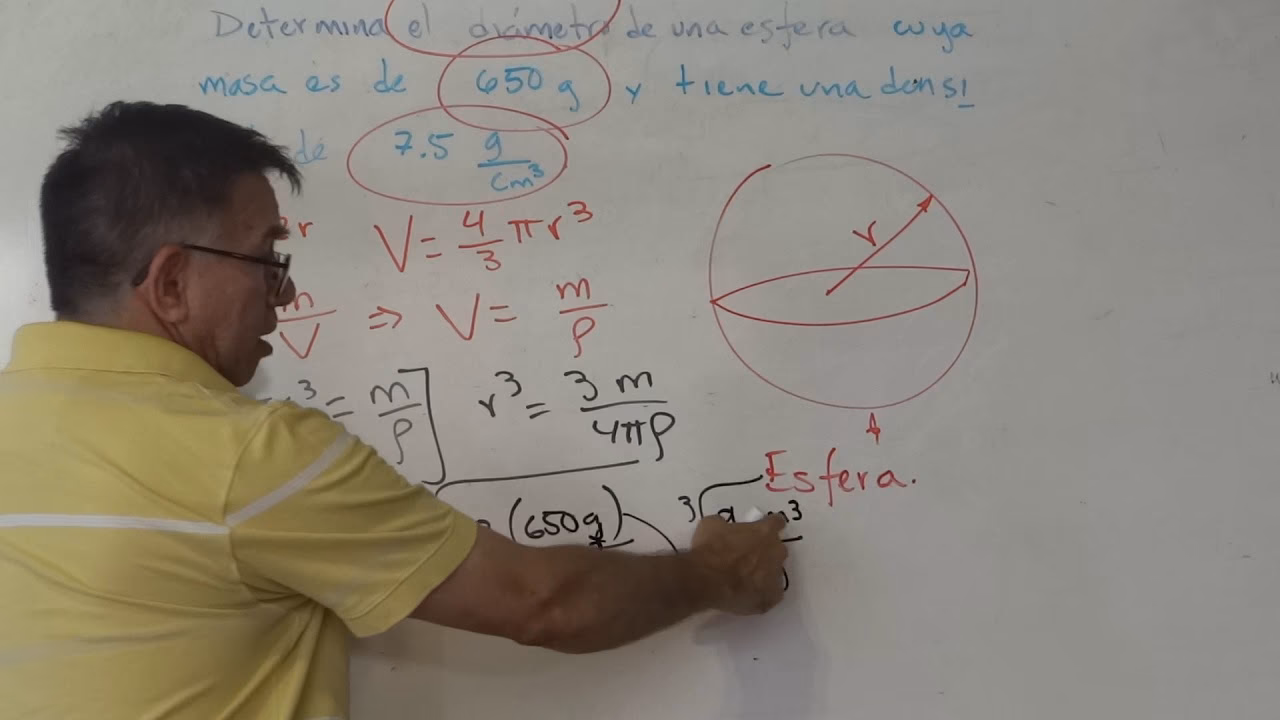 Determina el diámetro de una esfera cuya
masa es de 650 g y tiene una densi
de 7.5 g/cm³
V = 4/3 π r³
r
m/V ⇒ V = m/ρ
r³ = m/ρ ] r³ = 3 m/4πρ
Esfera.
(650 g) ³√